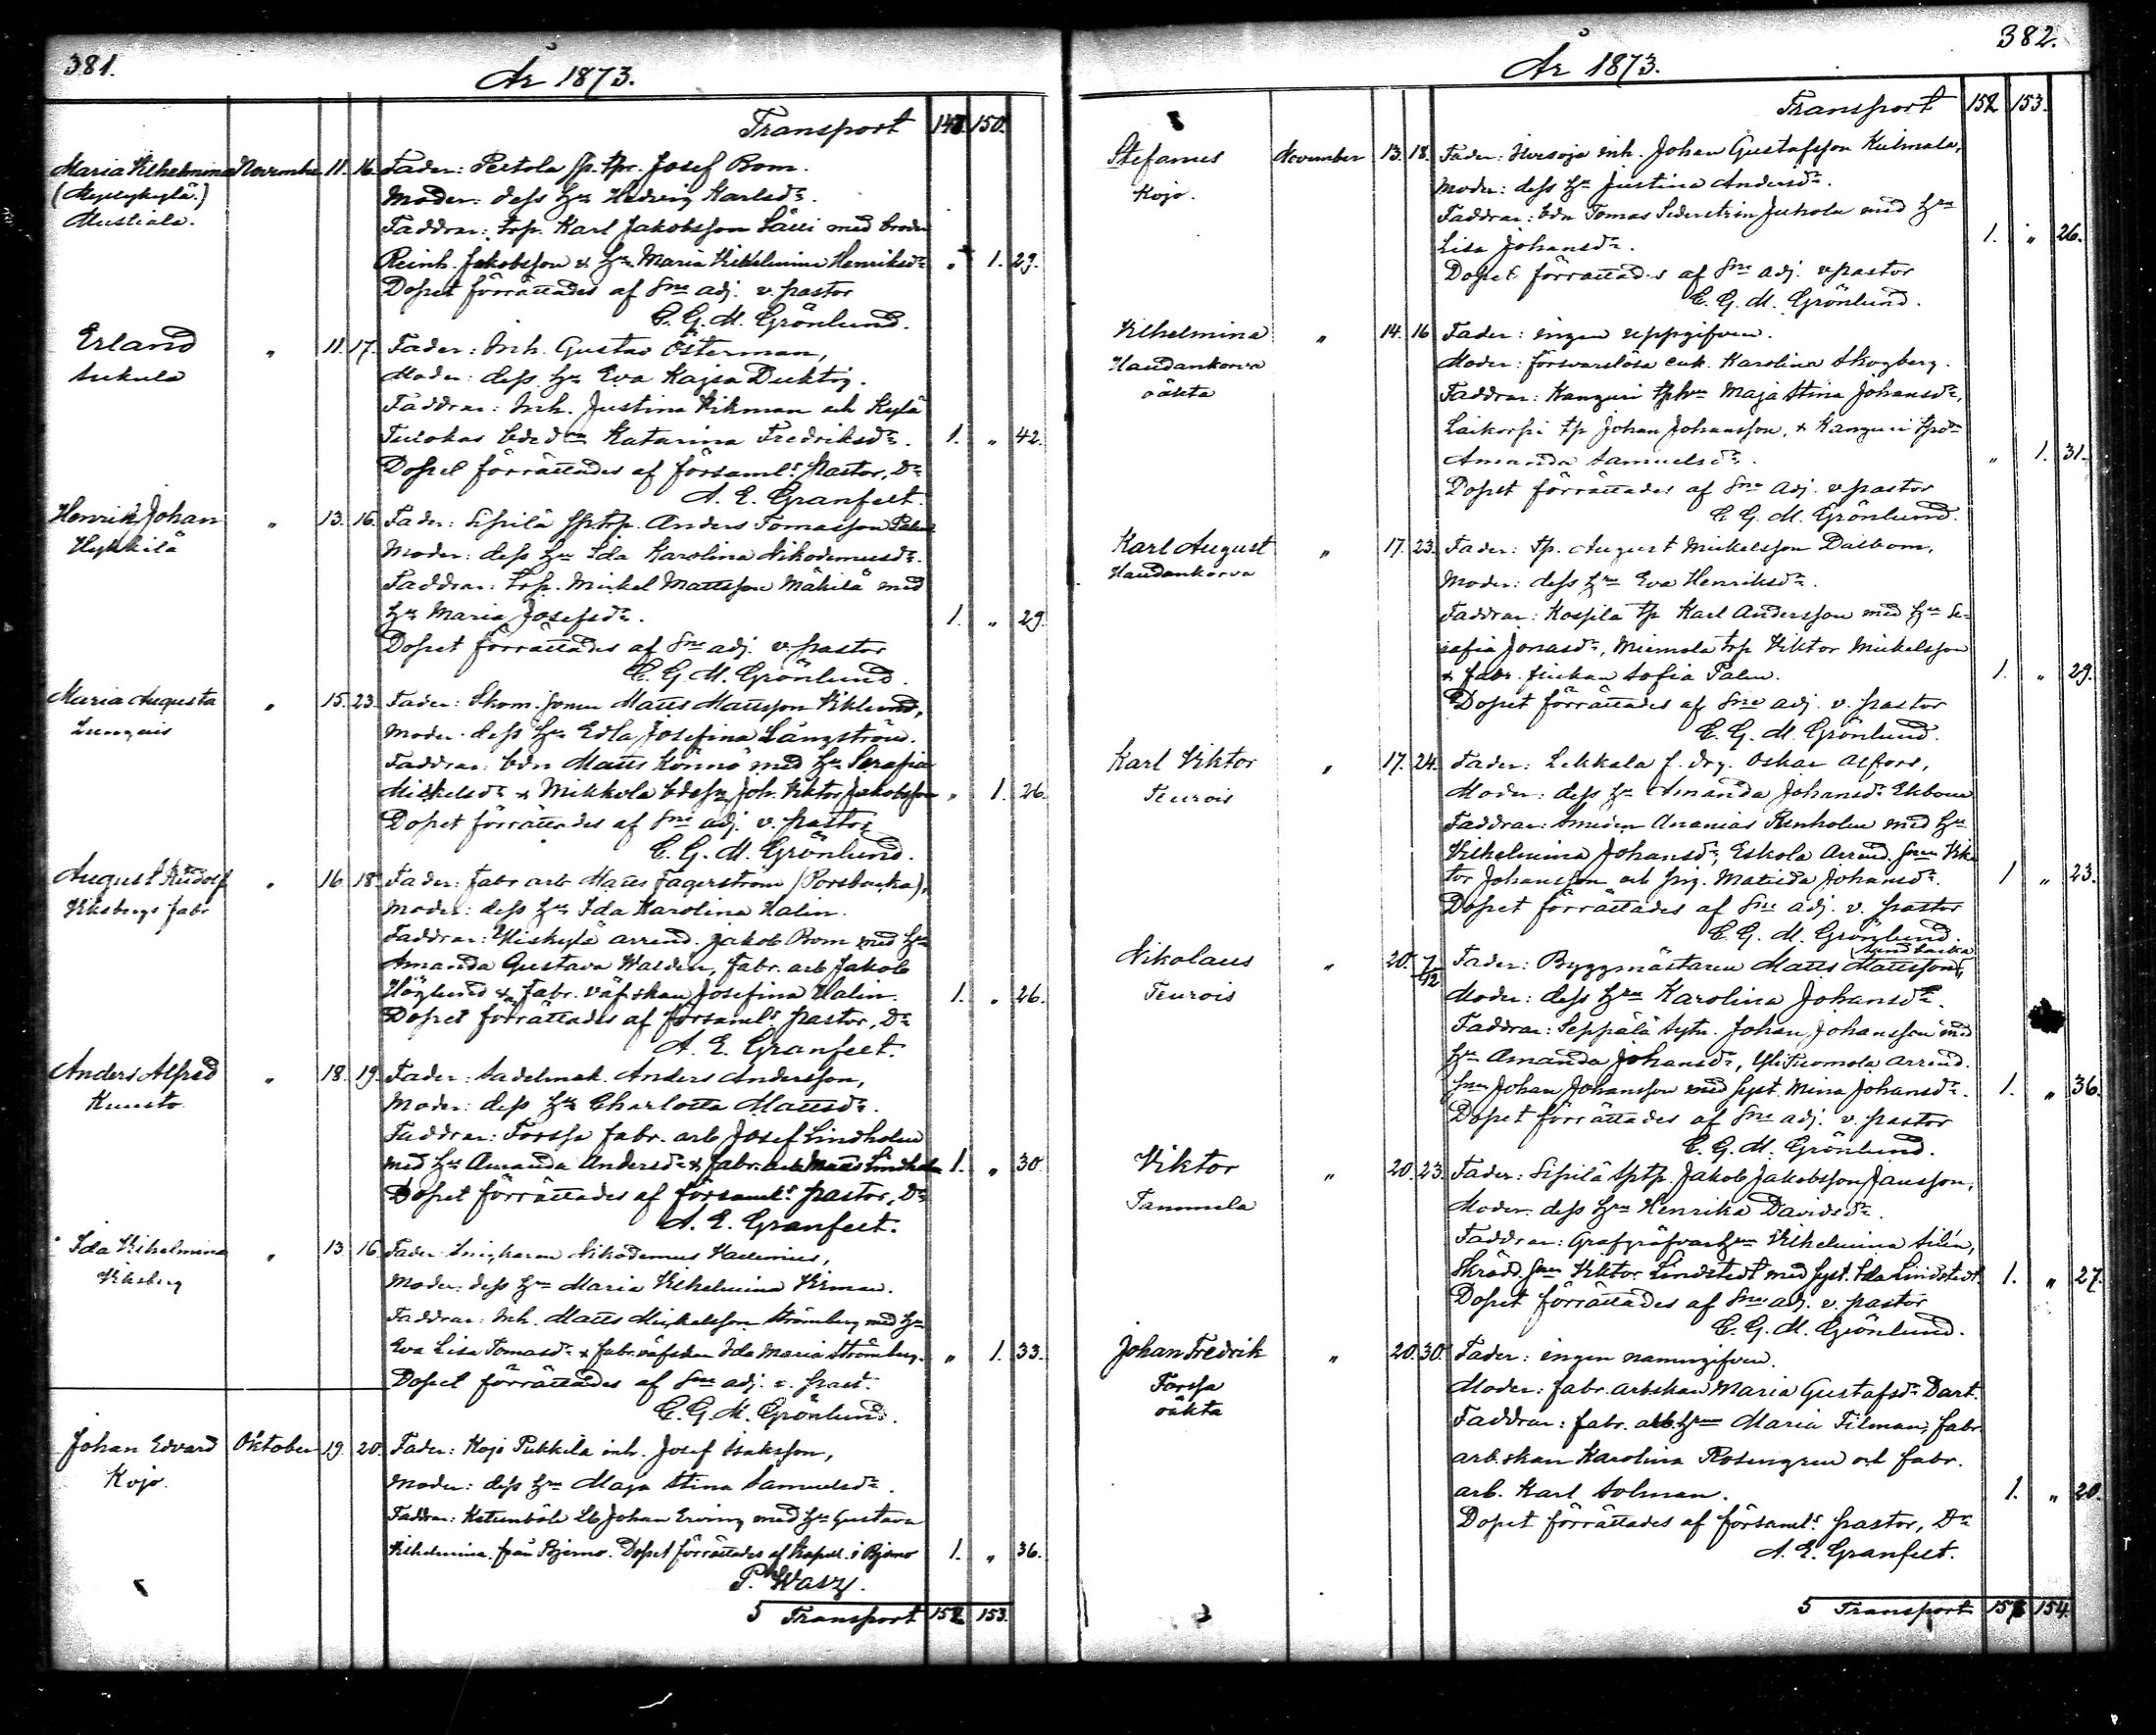 381.
År 1873.
Transport 150.
Maria Vilhelmina November 11. 16. Fader: Pertola Josef Bom.
Moder: dess Hedvig Karlsdr.
Mustiala. Faddrar: trp. Karl Jakobsson med broder
Reinh. Jakobsson & Maria Vilhelmina Henriksdr " 1. 29.
Dopet förrättades af adj. v. pastor
E. G. M. Grönlund.
Erland " 11. 17. Fader: Inh. Gustav Österman,
Sukula Moder: dess Eva Kajsa Ducktig.
Faddrar: Inh. Justina Vikman och Kylä
Katarina Fredriksdr. 1. " 42.
Dopet förrättades af församls pastor, Dr
A. E. Granfelt.
Henrik Johan " 13. 16. Fader: Sipilä Anders Tomasson
Hykkilä Moder: dess Ida Karolina Nikodemusdr.
Faddrar: trp. Mickel Mattsson Mäkilä med
Maria Josefsdr. 1. " 29.
Dopet förrättades af adj. v. pastor
E. G. M. Grönlund.
Maria Augusta " 15. 23. Fader: Skom. Matts Mattsson Viklund,
Moder: dess Edla Josefina Långström.
Faddrar: bdn Matts Könnö med Serafia
Mickelsdr & Mikkola Joh. Viktor Jakobsson " 1. 26.
Dopet förrättades af adj. v. pastor
E. G. M. Grönlund.
August Rudolf " 16 18. Fader: fabr arb Matts Fagerström
Viksbergs fabr Moder: dess Ida Karolina Malin.
Faddrar: arrend. Jakob Bom med
Amanda Gustava Waldén, fabr. arb Jakob
Höglund & fabr. väfskan Josefina Malin. 1. " 26.
Dopet förrättades af församls pastor, Dr
A. E. Granfelt.
Anders Alfred " 18. 19. Fader: Sadelmak. Anders Andersson,
Kuusto Moder: dess Charlotta Mattsdr.
Faddrar: Forssa fabr. arb Josef Lindholm
med Amanda Andersdr & fabr. arb Matts Lindholm 1. " 30.
Dopet förrättades af församls pastor, Dr
A. E. Granfelt.
Ida Vilhelmina " 13 16 Fader: Nikodemus
Viksberg Moder: dess Maria Vilhelmina
Faddrar: Inh. Matts Mickelsson Strömberg med
Eva Lisa Tomasdr & fabr. väfskan Ida Maria Strömberg. " 1. 33.
Dopet förrättades af adj. v. past.
E. G. M. Grönlund.
Johan Edvard Oktober 19. 20. Fader: Kojo Pukkila inh. Josef Isaksson,
Kojo. Moder: dess Maja Stina Samuelsdr.
Faddrar: Johan Erving med Gustava
Vilhelmina från Bjerno. Dopet förrättades af kapell. i Bjerno 1. " 36.
P. Wasz.
5 Transport 152 153.
382.
År 1873.
Transport 152 153.
Stefanus November 13. 18. Fader: inh. Johan Gustafsson Kulmala,
Kojo. Moder: dess Justina Andersdr.
Faddrar: bdn Tomas Juhola med
Lisa Johansdr. 1. " 26.
Dopet förrättades af adj. v pastor
E. G. M. Grönlund.
Vilhelmina " 14. 16 Fader: ingen uppgifven.
Haudankorva Moder: försvarslösa enk. Karolina Skogberg.
oäkta Faddrar: Kanguri Maja Stina Johansdr,
tp Johan Johansson, & Kanguri
Amanda Samuelsdr. " 1. 31.
Dopet förrättades af adj. v pastor
E. G. M. Grönlund.
Karl August " 17. 23. Fader: tp. August Mickelsson Dalbom,
Haudankorva Moder: dess Eva Henriksdr.
Faddrar: Kospila tp Karl Andersson med Se-
rafia Jonasdr, trp Viktor Mickelsson
& fabr. Sofia Palm. 1. " 29.
Dopet förrättades af adj. v. pastor
E. G. M. Grönlund.
Karl Viktor " 17. 24. Fader: Lekkala f. drg. Oskar Alfors,
Teurois Moder: dess Amanda Johansdr Ekbom
Faddrar: Smeden Ananias Renholm med
Vilhelmina Johansdr, Eskola arrend. Vik-
tor Johansson och pig. Matilda Johansdr. 1 " 23.
Dopet förrättades af adj. v. pastor
E. G. M. Grönlund.
Nikolaus " 20. 7/12 Fader: Byggmästaren Matts Mattsson,
Teurois Moder: dess Karolina Johansdr.
Faddrar: Seppälä Johan Johansson med
Amanda Johansdr, arrend.
Johan Johansson med syst. Mina Johansdr. 1. " 36.
Dopet förrättades af adj. v. pastor
E. G. M. Grönlund.
Viktor " 20. 23. Fader: Sipilä Jakob Jakobsson Jansson,
Tammela Moder: dess Henrika Davidsdr.
Faddrar: Vilhelmina Silén,
Skrädd. Viktor Lindstedt med syst. Ida Lindstedt. 1. " 27.
Dopet förrättades af adj. v. pastor
E. G. M. Grönlund.
Johan Fredrik " 20. 30. Fader: ingen namngifven.
Forssa Moder: fabr. arbskan Maria Gustafsdr Dart.
oäkta Faddrar: fabr. Maria Tilman, fabr.
arb. skan Karolina Rosengren och fabr.
arb. Karl Solman. 1. " 20.
Dopet förrättades af församls pastor, Dr
A. E. Granfelt.
5 Transport 154.